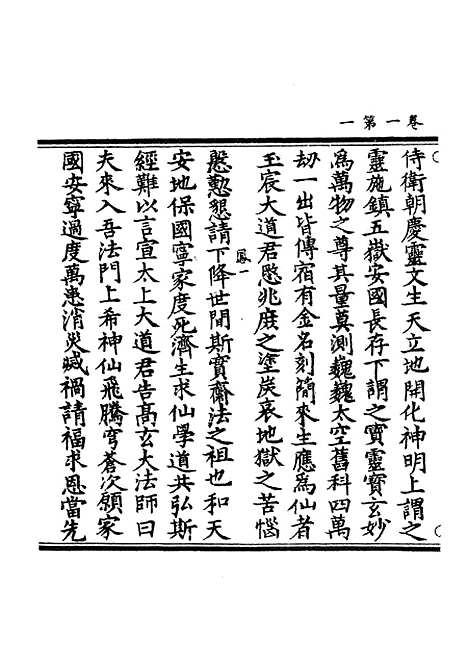 一第一卷
侍衛朝慶靈文生天立地開化神明上謂之
靈施鎮五嶽安國長存下謂之寶靈寶玄妙
爲萬物之尊其量莫測巍巍太空舊科四萬
劫一出皆傳宿有金名刻簡來生應爲仙者
玉宸大道君愍兆庶之塗炭哀地獄之苦惱
鳳一
慇懃懇請下降世間斯實齋法之祖也和天
安地保國寧家度死濟生求仙學道共弘斯
經難以言宣太上大道君告高玄大法師曰
夫來入吾法門上希神仙飛騰穹蒼次願家
國安寧過度萬患消災滅禍請福求恩當先